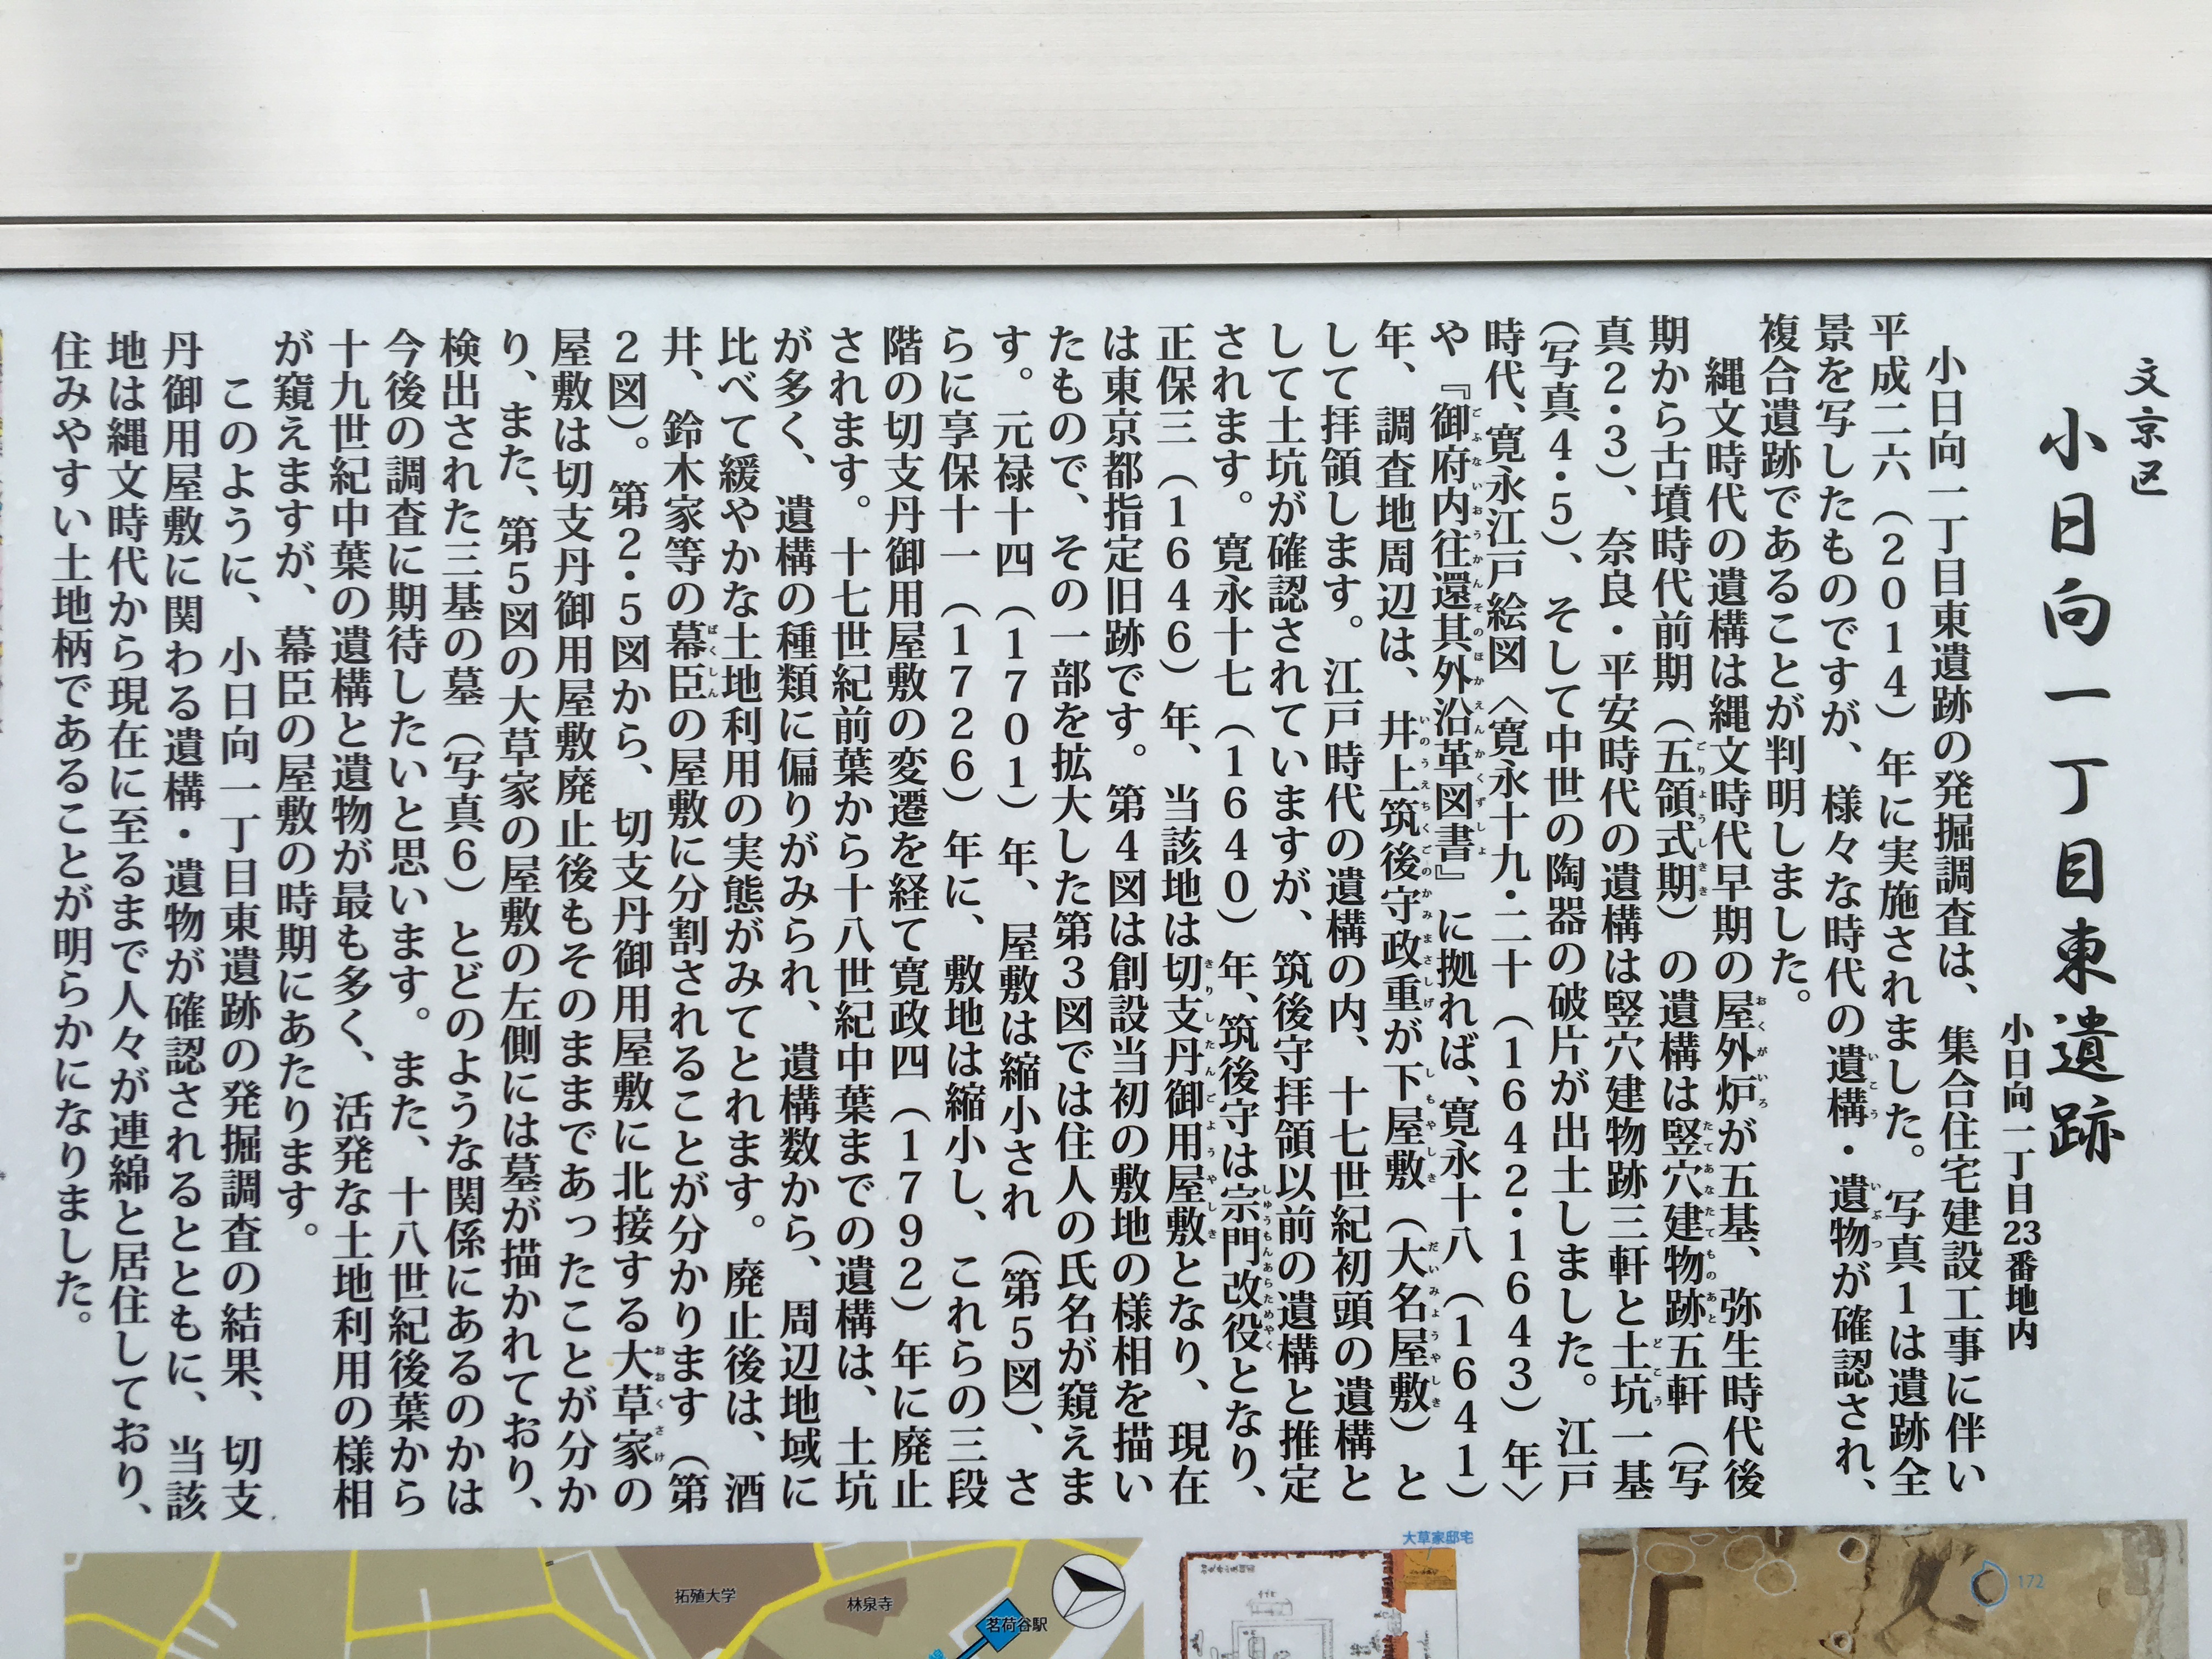 文京区
小日向一丁目東遺跡
小日向一丁目23番地内
小日向一丁目東遺跡の発掘調査は、集合住宅建設工事に伴い
平成二六（2014）年に実施されました。写真1は遺跡全
景を写したものですが、様々な時代の遺構・遺物が確認され、
複合遺跡であることが判明しました。
縄文時代の遺構は縄文時代早期の屋外炉が五基、弥生時代後
期から古墳時代前期（五領式期）の遺構は竪穴建物跡五軒（写
真2・3）、奈良・平安時代の遺構は竪穴建物跡三軒と土坑一基
（写真4・5）、そして中世の陶器の破片が出土しました。江戸
時代、寛永江戸絵図〈寛永十九・二十（1642・1643）年〉
や『御府内往還其外沿革図書』に拠れば、寛永十八（1641）
年、調査地周辺は、井上筑後守政重が下屋敷（大名屋敷）と
して拝領します。江戸時代の遺構の内、十七世紀初頭の遺構と
して土坑が確認されていますが、筑後守拝領以前の遺構と推定
されます。寛永十七（1640）年、筑後守は宗門改役となり、
正保三（1646）年、当該地は切支丹御用屋敷となり、現在
は東京都指定旧跡です。第4図は創設当初の敷地の様相を描い
たもので、その一部を拡大した第3図では住人の氏名が窺えま
す。元禄十四（1701）年、屋敷は縮小され（第5図）、さ
らに享保十一（1726）年に、敷地は縮小し、これらの三段
階の切支丹御用屋敷の変遷を経て寛政四（1792）年に廃止
されます。十七世紀前葉から十八世紀中葉までの遺構は、土坑
が多く、遺構の種類に偏りがみられ、遺構数から、周辺地域に
比べて緩やかな土地利用の実態がみてとれます。廃止後は、酒
井、鈴木家等の幕臣の屋敷に分割されることが分かります（第
2図）。第2・5図から、切支丹御用屋敷に北接する大草家の
屋敷は切支丹御用屋敷廃止後もそのままであったことが分か
り、また、第5図の大草家の屋敷の左側には墓が描かれており、
検出された三基の墓（写真6）とどのような関係にあるのかは
今後の調査に期待したいと思います。また、十八世紀後葉から
十九世紀中葉の遺構と遺物が最も多く、活発な土地利用の様相
が窺えますが、幕臣の屋敷の時期にあたります。
このように、小日向一丁目東遺跡の発掘調査の結果、切支
丹御用屋敷に関わる遺構・遺物が確認されるとともに、当該
地は縄文時代から現在に至るまで人々が連綿と居住しており、
住みやすい土地柄であることが明らかになりました。
大草家邸宅
172
拓殖大学
林泉寺
茗荷谷駅